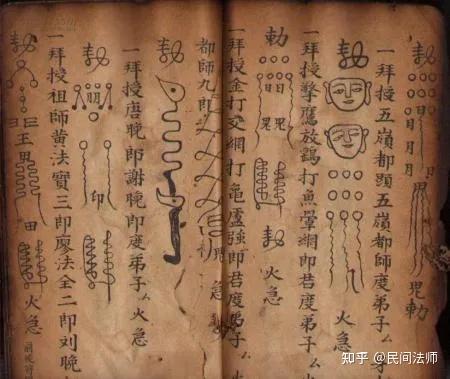 勅
一拜授五嶺都頭五嶺都師度弟子厶
勅
火急
一拜授擎鷹放鷂打魚網郎君度弟子厶火
勅
日日
勅
火急
一拜授金打交網打龜盧強郎君度弟子厶火
都師九郎
急
勅
一拜授唐晚郎謝晚郎度弟子厶火急
勅
印
一拜授祖師黃法寳三郎廖法全二郎刘晚
勅
王男
田
火急
知乎 @民间法师